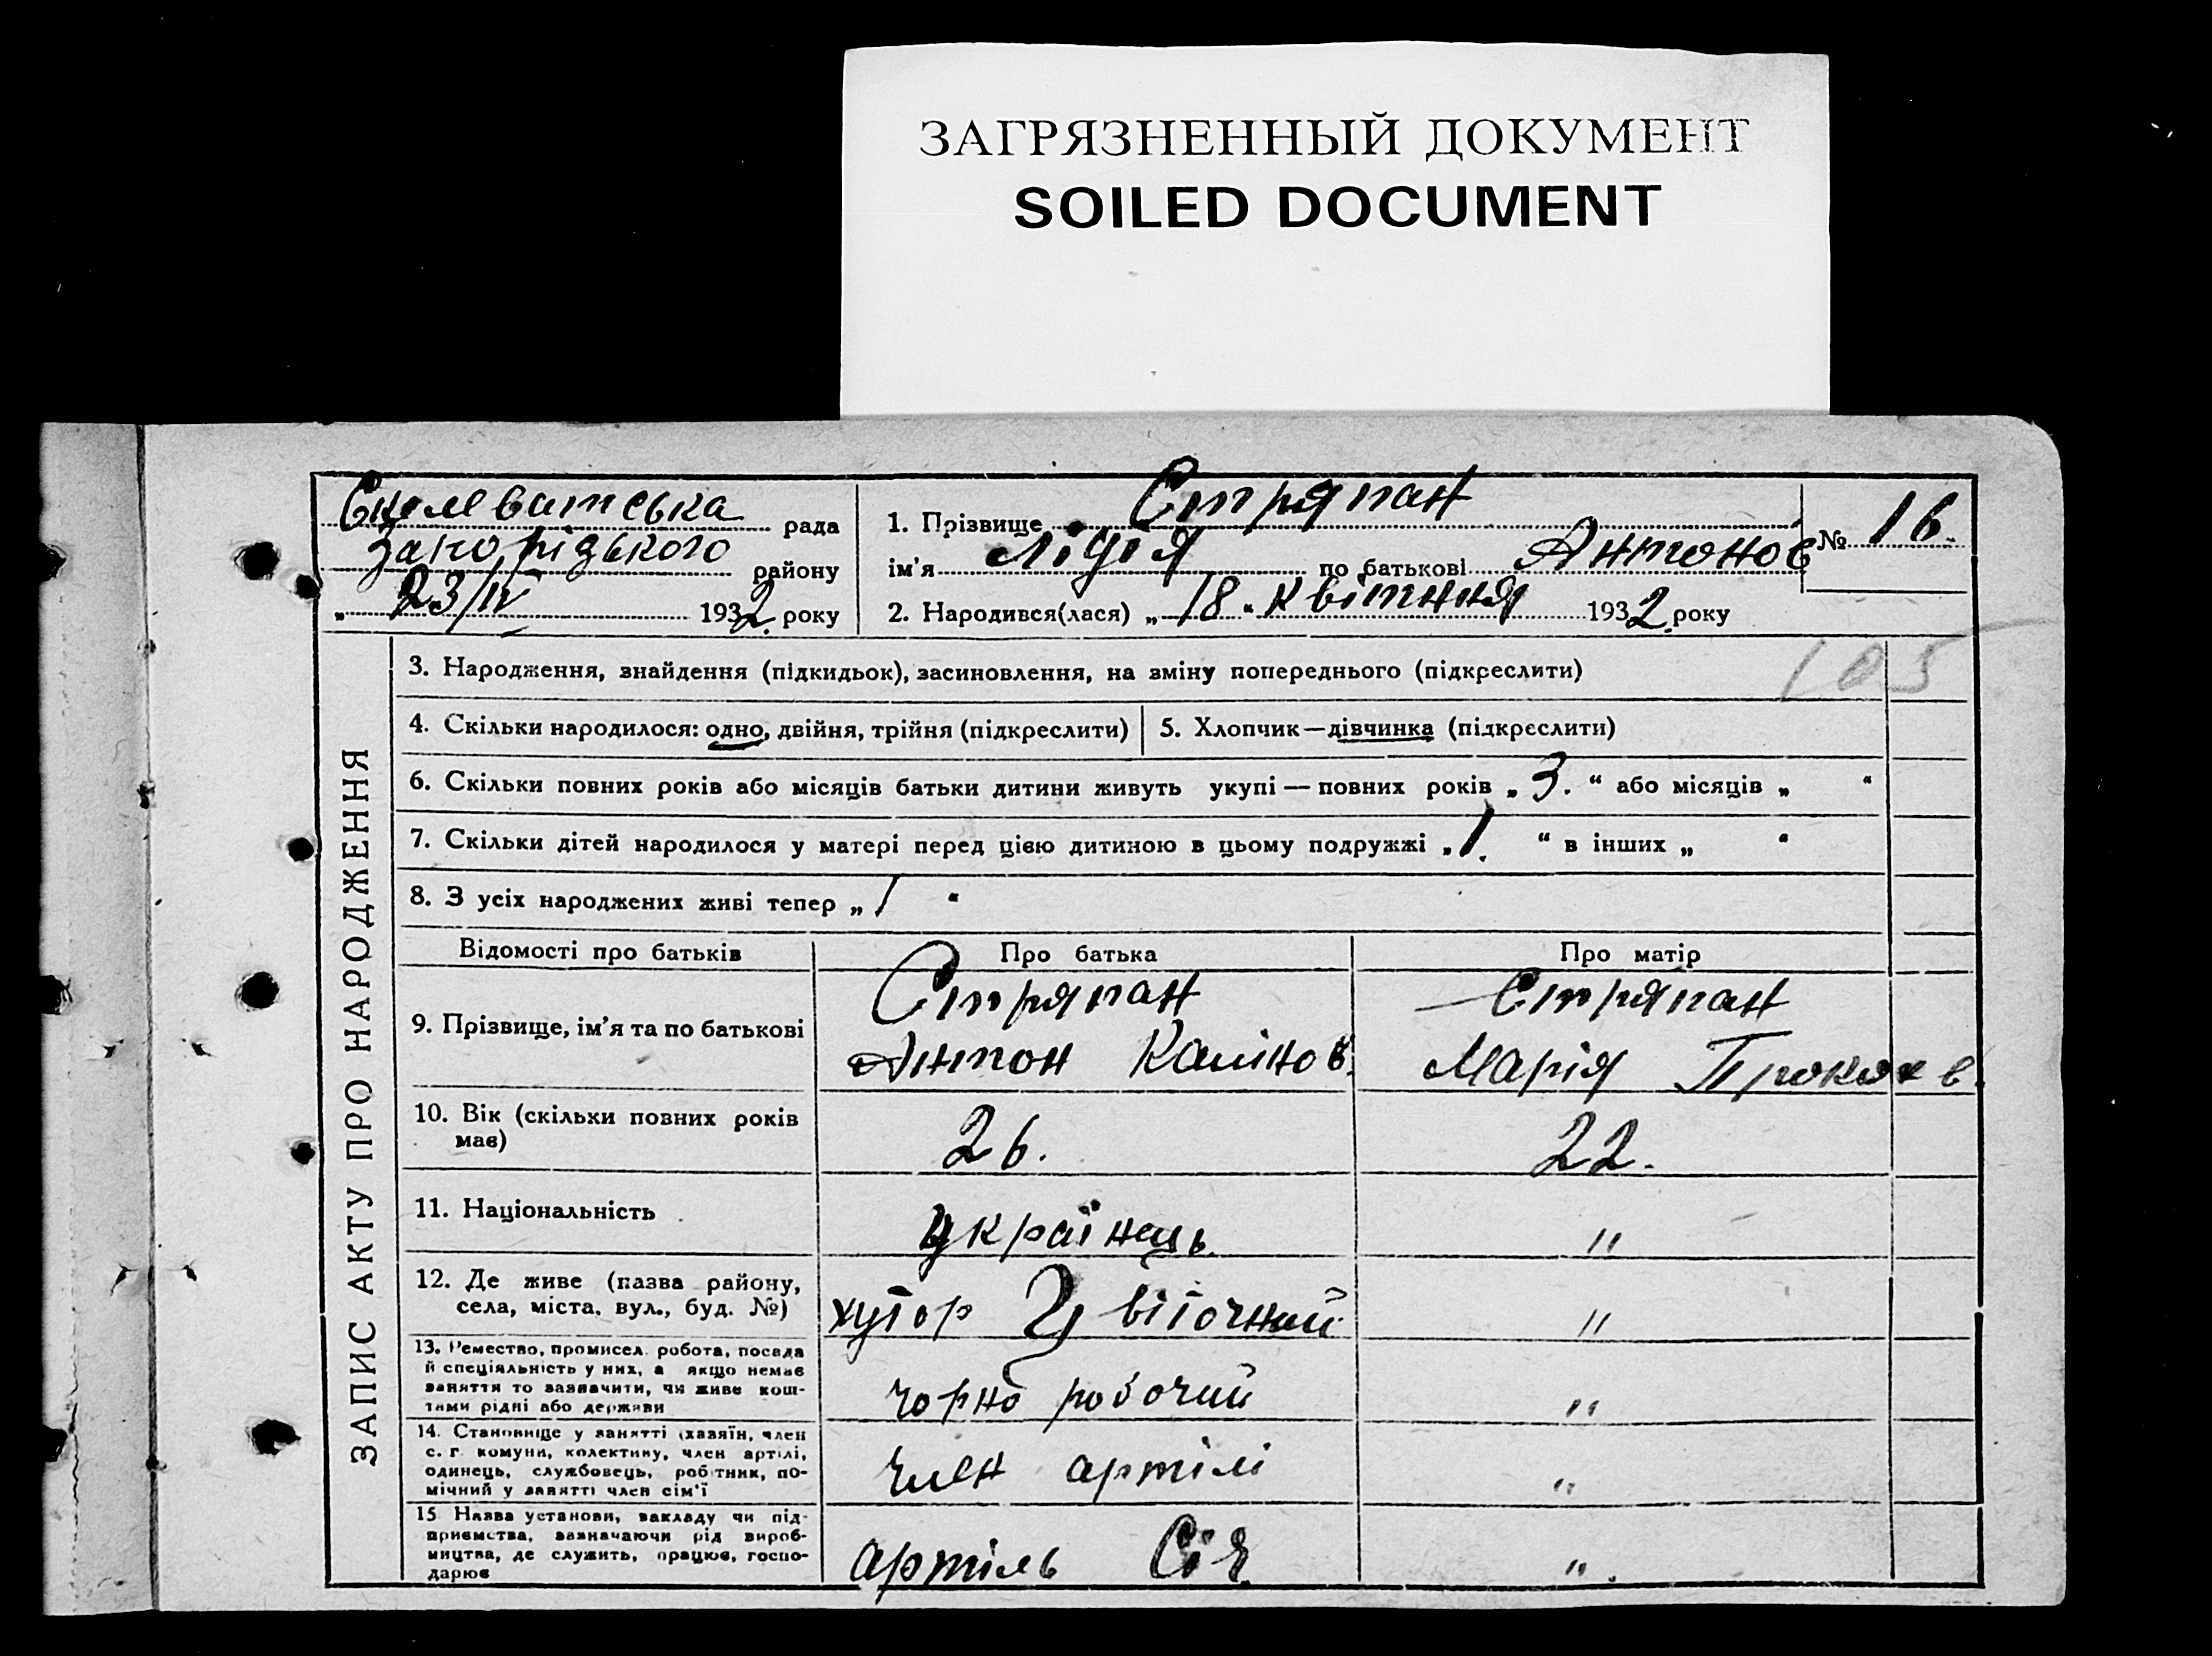 ЗАГРЯЗНЕННЫЙ ДОКУМЕНТ
SOILED DOCUMENT
рада
району
„ 23/IV 1932. року
1. Прізвище Стряпан
ім'я Лідія по батькові Антонов № 16.
2. Народився(лася) „18" квітння 1932. року
105
ЗАПИС АКТУ ПРО НАРОДЖЕННЯ
3. Народження, знайдення (підкидьок), засиновлення, на зміну попереднього (підкреслити)
4. Скільки народилося: одно, двійня, трійня (підкреслити) 5. Хлопчик—дівчинка (підкреслити)
6. Скільки повних років або місяців батьки дитини живуть укупі — повних років „ 3. “ або місяців „ “
7. Скільки дітей народилося у матері перед цією дитиною в цьому подружжі „ 1. “ в інших „ “
8. З усіх народжених живі тепер „ 1 “
Відомості про батьків Про батька Про матір
9. Прізвище, ім'я та по батькові
Стряпан Стряпан
Антон Калінов. Марія
10. Вік (скільки повних років має) 26. 22.
11. Національність українець "
12. Де живе (назва району, села, міста, вул., буд. №) хутор Цвіточний "
13. Ремество, промисел, робота, посада
й спеціяльність у них, а якщо немає
заняття то зазначити, чи живе кош-
тами рідні або держави
чорно робочий "
14. Становище у занятті (хазяїн, член
с. г. комуни, колективу, член артілі,
одинець, службовець, робітник, по-
мічний у занятті член сім'ї
член артілі "
15 Назва установи, закладу чи під-
приємства, зазначаючи рід вироб-
ництва, де служить, працює, госпо-
дарює
артіль Січ ".